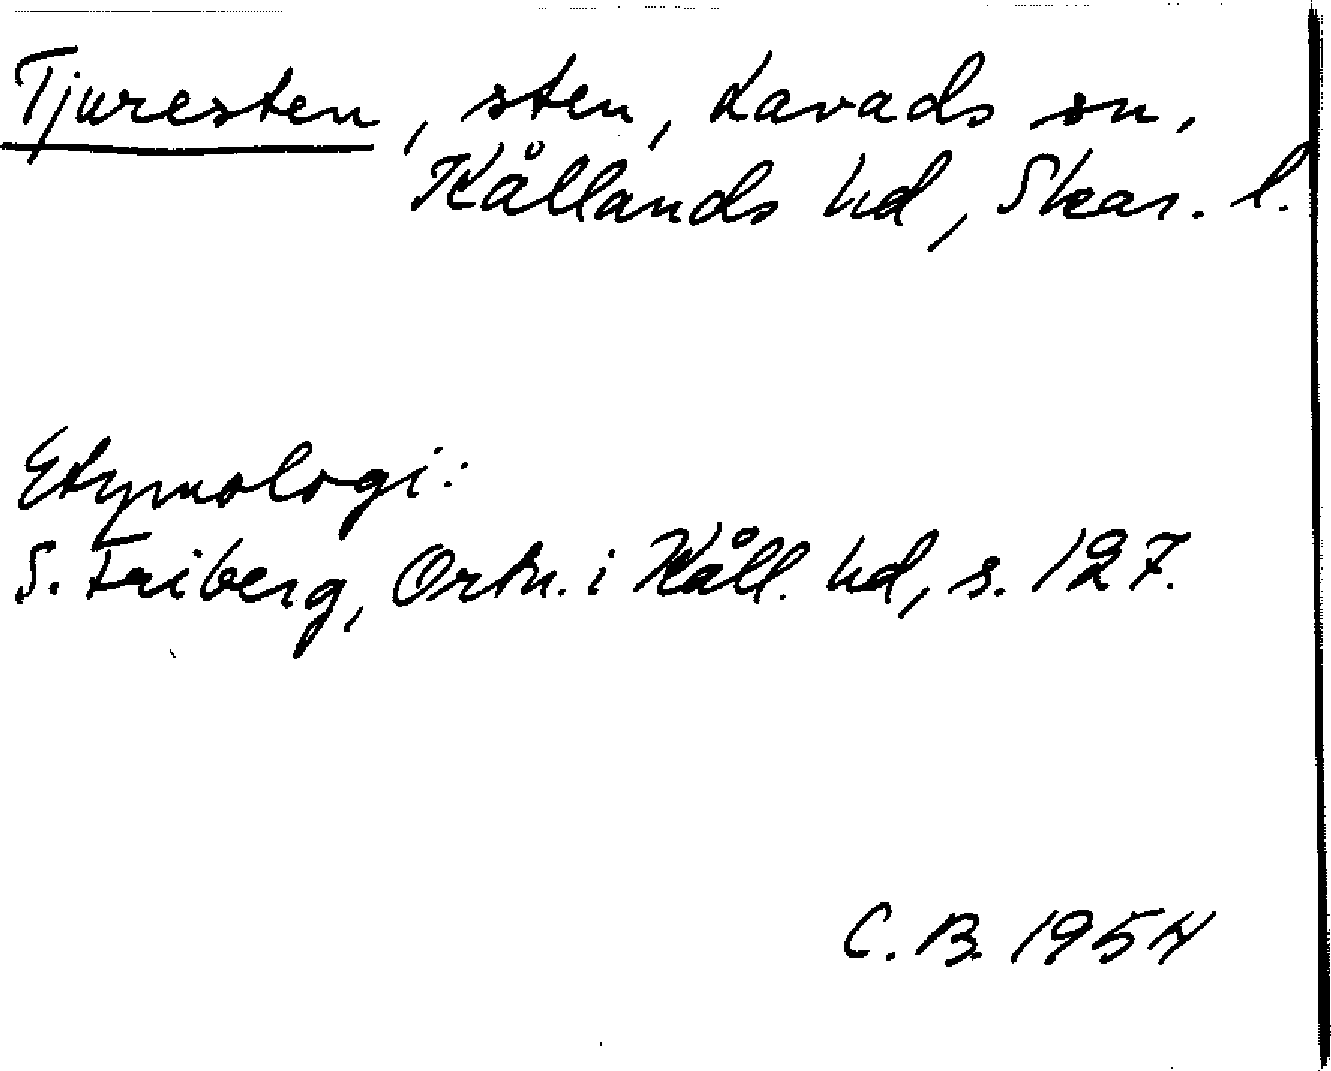 Tjuresten, sten, Lavads sn,
Kållands hd, Skar. l.
Etymologi:
S. Friberg, Ortn. i Kåll. hd, s. 127.
C. B. 1954